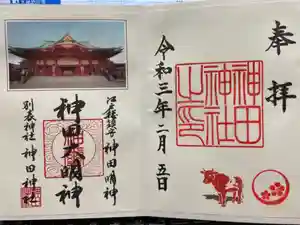 奉拝
神田神社之印
令和三年二月五日
江戸総鎮守 神田明神
神田大明神
別表神社 神田神社